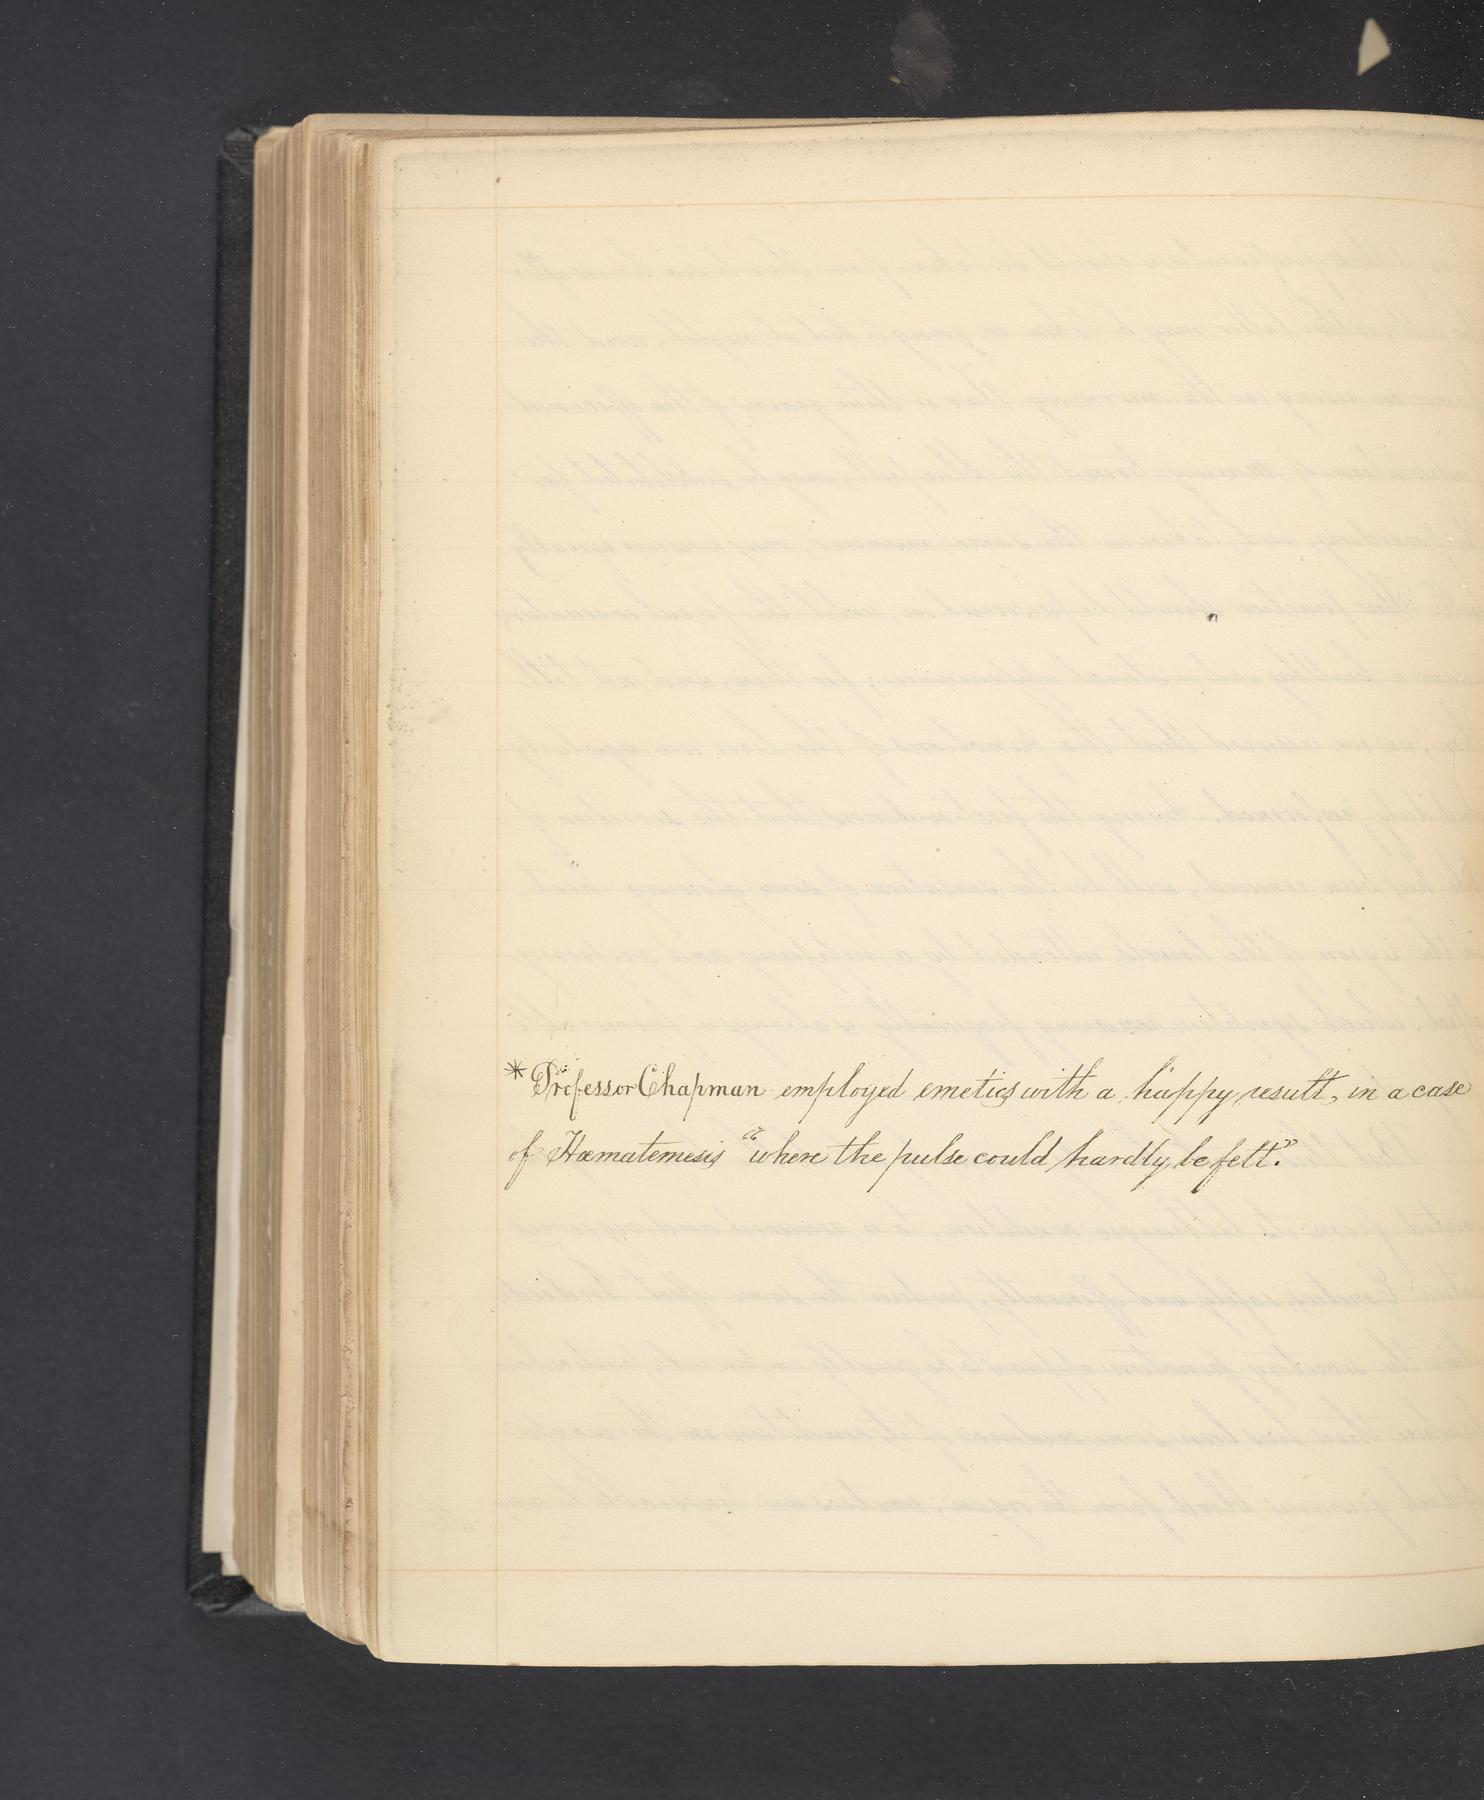 *Professor Chapman employed emetics with a happy result, in a case
of Hæmatemesis "where the pulse could hardly be felt."